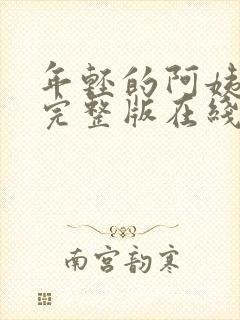 年轻的阿姨
完整版在线
南宫韵寒